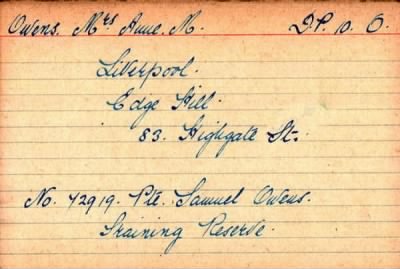 Owens, Mrs Anne. M. D.P. 10. O.
Liverpool.
Edge Hill.
83. Highgate St.
No. 42919. Pte. Samuel Owens.
Training Reserve.